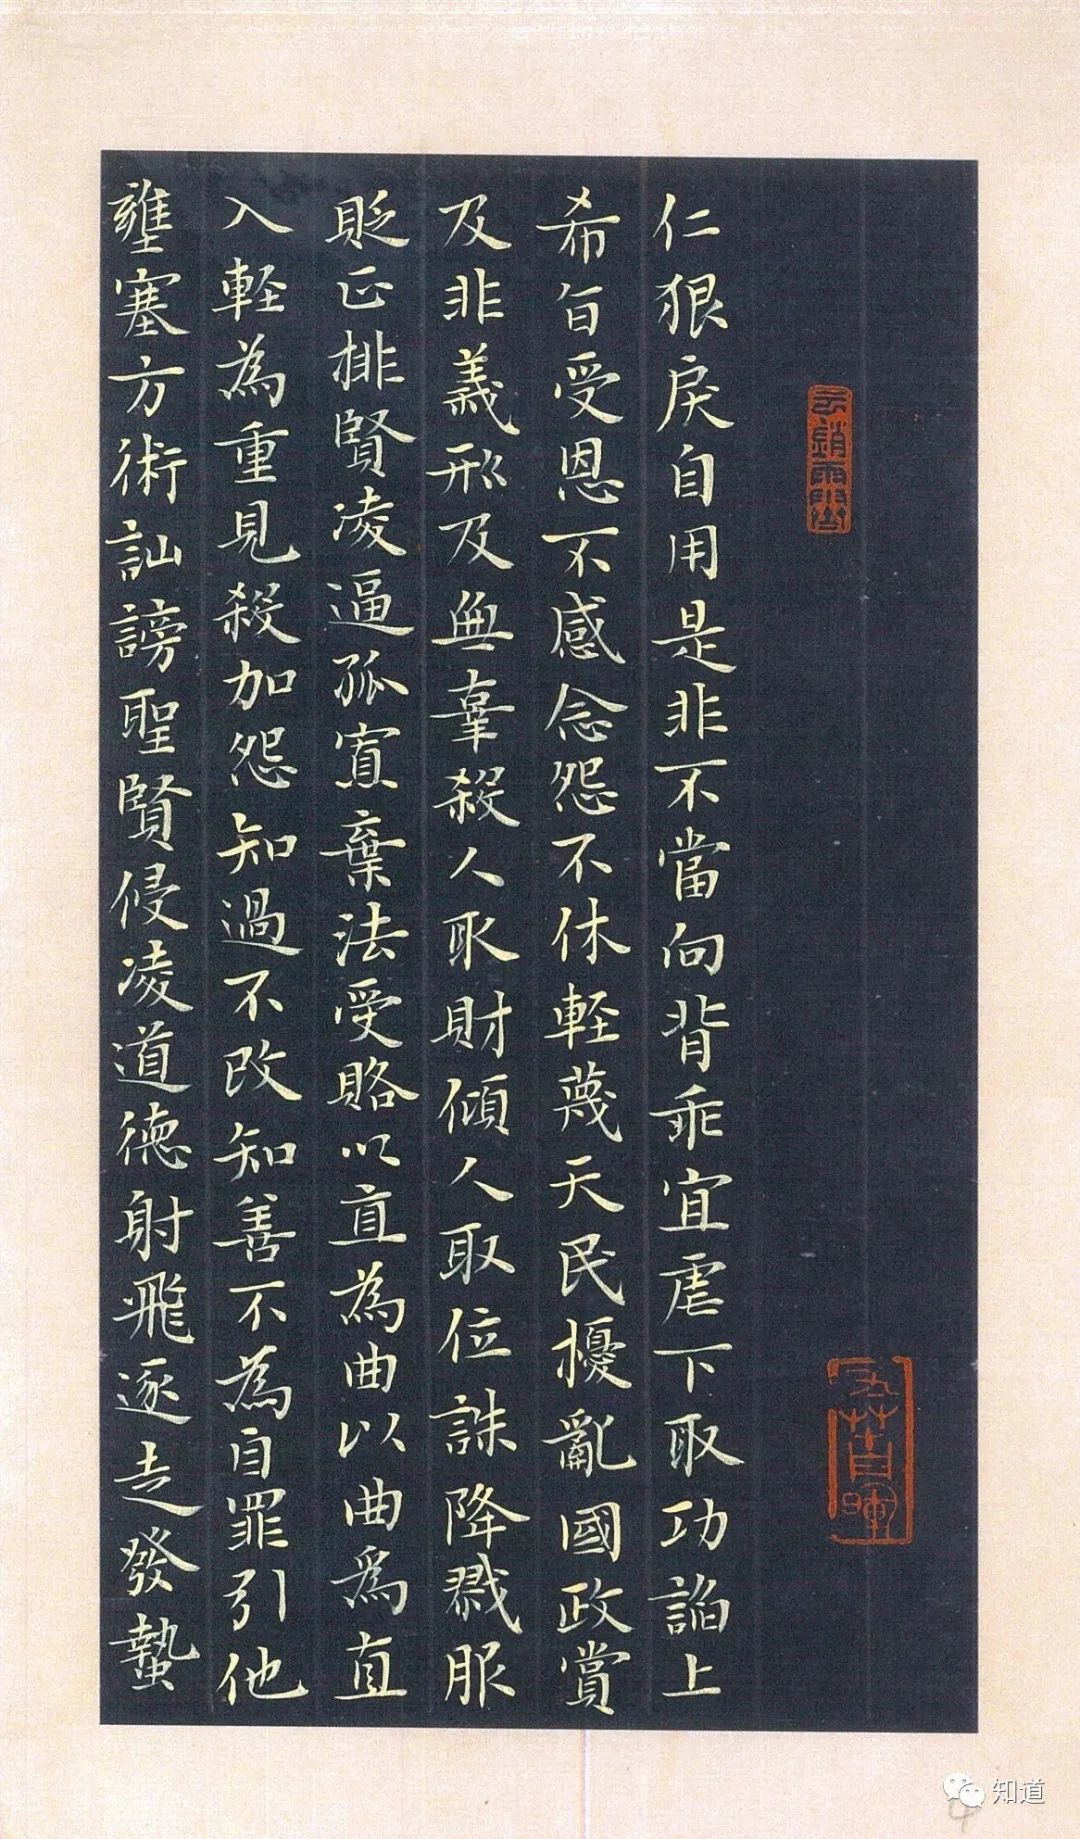 仁狠戾自用是非不當向背乖宜虐下取功諂上
希旨受恩不感念怨不休輕蔑天民擾亂國政賞
及非義刑及無辜殺人取財傾人取位誅降戮服
貶正排賢凌逼孤寡棄法受賂以直為曲以曲為直
入輕為重見殺加怨知過不改知善不為自罪引他
壅塞方術訕謗聖賢侵凌道德射飛逐走發蟄
知道